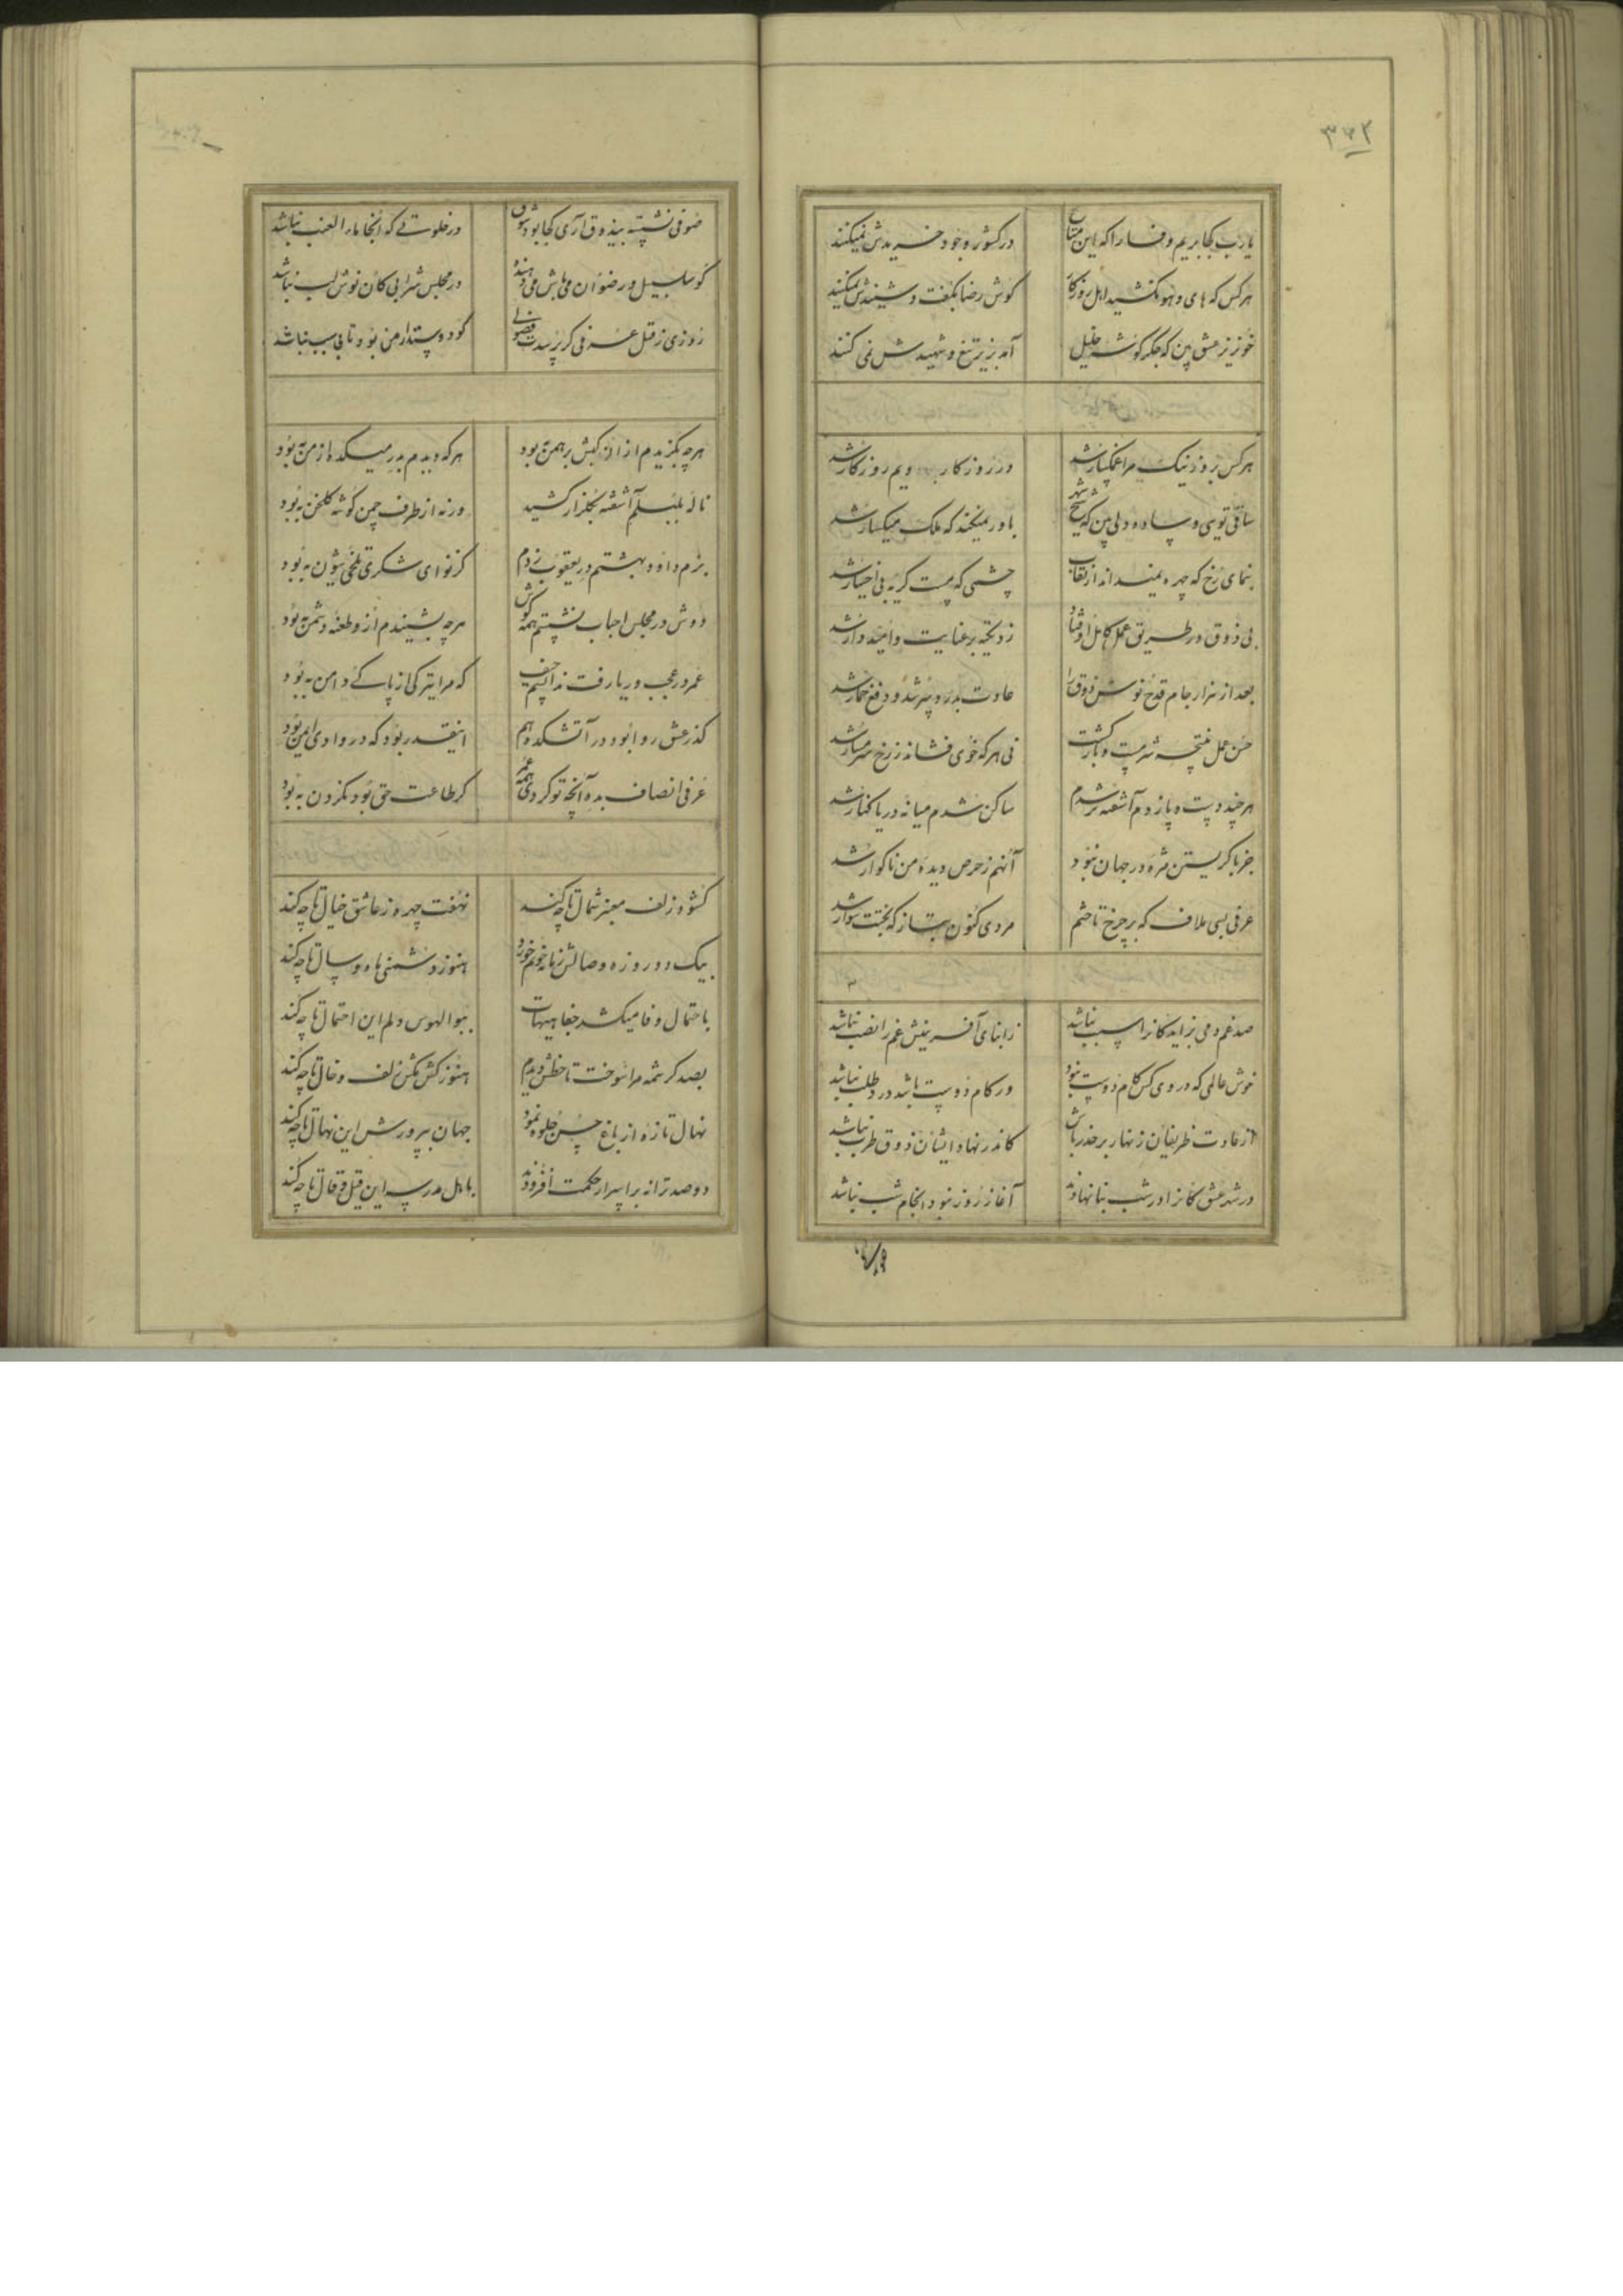 ۳۶۲
یارب کجا بریم وفا را که این متاع در کشور وجود خریدش نمیکنند
هر کس که های و هو نکشید اهل روزگار گوش رضا بگفت و شنیدش نمیکنند
خونریز عشق بین که جگر گوشه خلیل آمد بزیر تیغ و شهیدش نمی کنند
هر کس بروز نیک مرا غمگسار شد در روزگار دیم روزگار شد
ساقی تویی و ساده دلی بین که شیخ شهر باور نمیکند که ملک میگسار شد
بنمای رخ که چهره نقاب چشمی که مست گریه بی اختیار شد
بی ذوق در طریق عمل کامل اوفتاد زد تکیه بر عنایت و امیدوار شد
بعد از هزار جام قدح نوش ذوق را عادت بدرد سر شد و دفع خمار شد
حسن عمل نتیجه شرمست و بازگشت نی هر که خوی فشاند ز رخ شرمسار شد
هر چند دست و پا زدم آشفته تر شدم ساکن شدم میانه دریا کنار شد
جز با گریستن مزه در جهان نبود آنهم ز حرص دیده من ناگوار شد
عرفی بسی ملاف که بر چرخ تاختم مردی کنون بتاز که بختت سوار شد
صد غم دمی بزاید کانرا سبب نباشد زابنای آفرینش غم را نصب نباشد
خوش عالمی که در وی کس کام دوست نبود ور کام دوست باشد در طلب نباشد
از عادت ظریفان زنهار بر حذر باش کاندر نهاد ایشان ذوق طرب نباشد
در شهر عشق کانرا در شب بنا نهادند آغاز روز نبود انجام شب نباشد
صوفی نشسته بیذوق آری کجا بود شوق در خلوتی که آنجا ماء العنب نباشد
گو سلسبیل و رضوان می باش می دهندم در مجلس شرابی کان نوش لب نباشد
روزی ز قتل عرفی گر پرسدت فضولی گو دوستدار من بود تا بی سبب نباشد
هر چه بگزیدم از ان کیش برهمن به بود هر که دیدم بدر میکده از من به بود
ناله بلبلم آشفته بگلزار کشید ورنه از طرف چمن گوشه گلخن به بود
بزم داود بهشتم در یعقوب زدم کز نوای شکری تلخی شیون به بود
دوش در مجلس احباب نشستم همه گوش هر چه بشنیدم از و طعنه دشمن به بود
عمر در عجب و ریا رفت ندانستم حیف که مرا بتر کی از پاکی دامن به بود
گذر عشق روا بود در آتشکده هم اینقدر بود که در وادی ایمن به بود
عرفی انصاف بده آنچه تو کردی همه عمر گر طاعت حق بود نکردن به بود
گشود زلف معنبر شمال تا چه کند نهفت چهره ز عاشق خیال تا چه کند
بیک دو روزه وصالش زمانه خونم خورد هنوز دشمنی ماه و سال تا چه کند
باحتمال وفا میکشد جفا هیهات ببوالهوس دلم این احتمال تا چه کند
بصد کرشمه مرا سوخت تا خطش دیدم هنوز کش مکش زلف و خال تا چه کند
نهال تازه از باغ حسن جلوه نمود جهان بپرورش این نهال تا چه کند
دو صد ترانه بر اسرار حکمت افزودند باهل مدرسه این قیل و قال تا چه کند